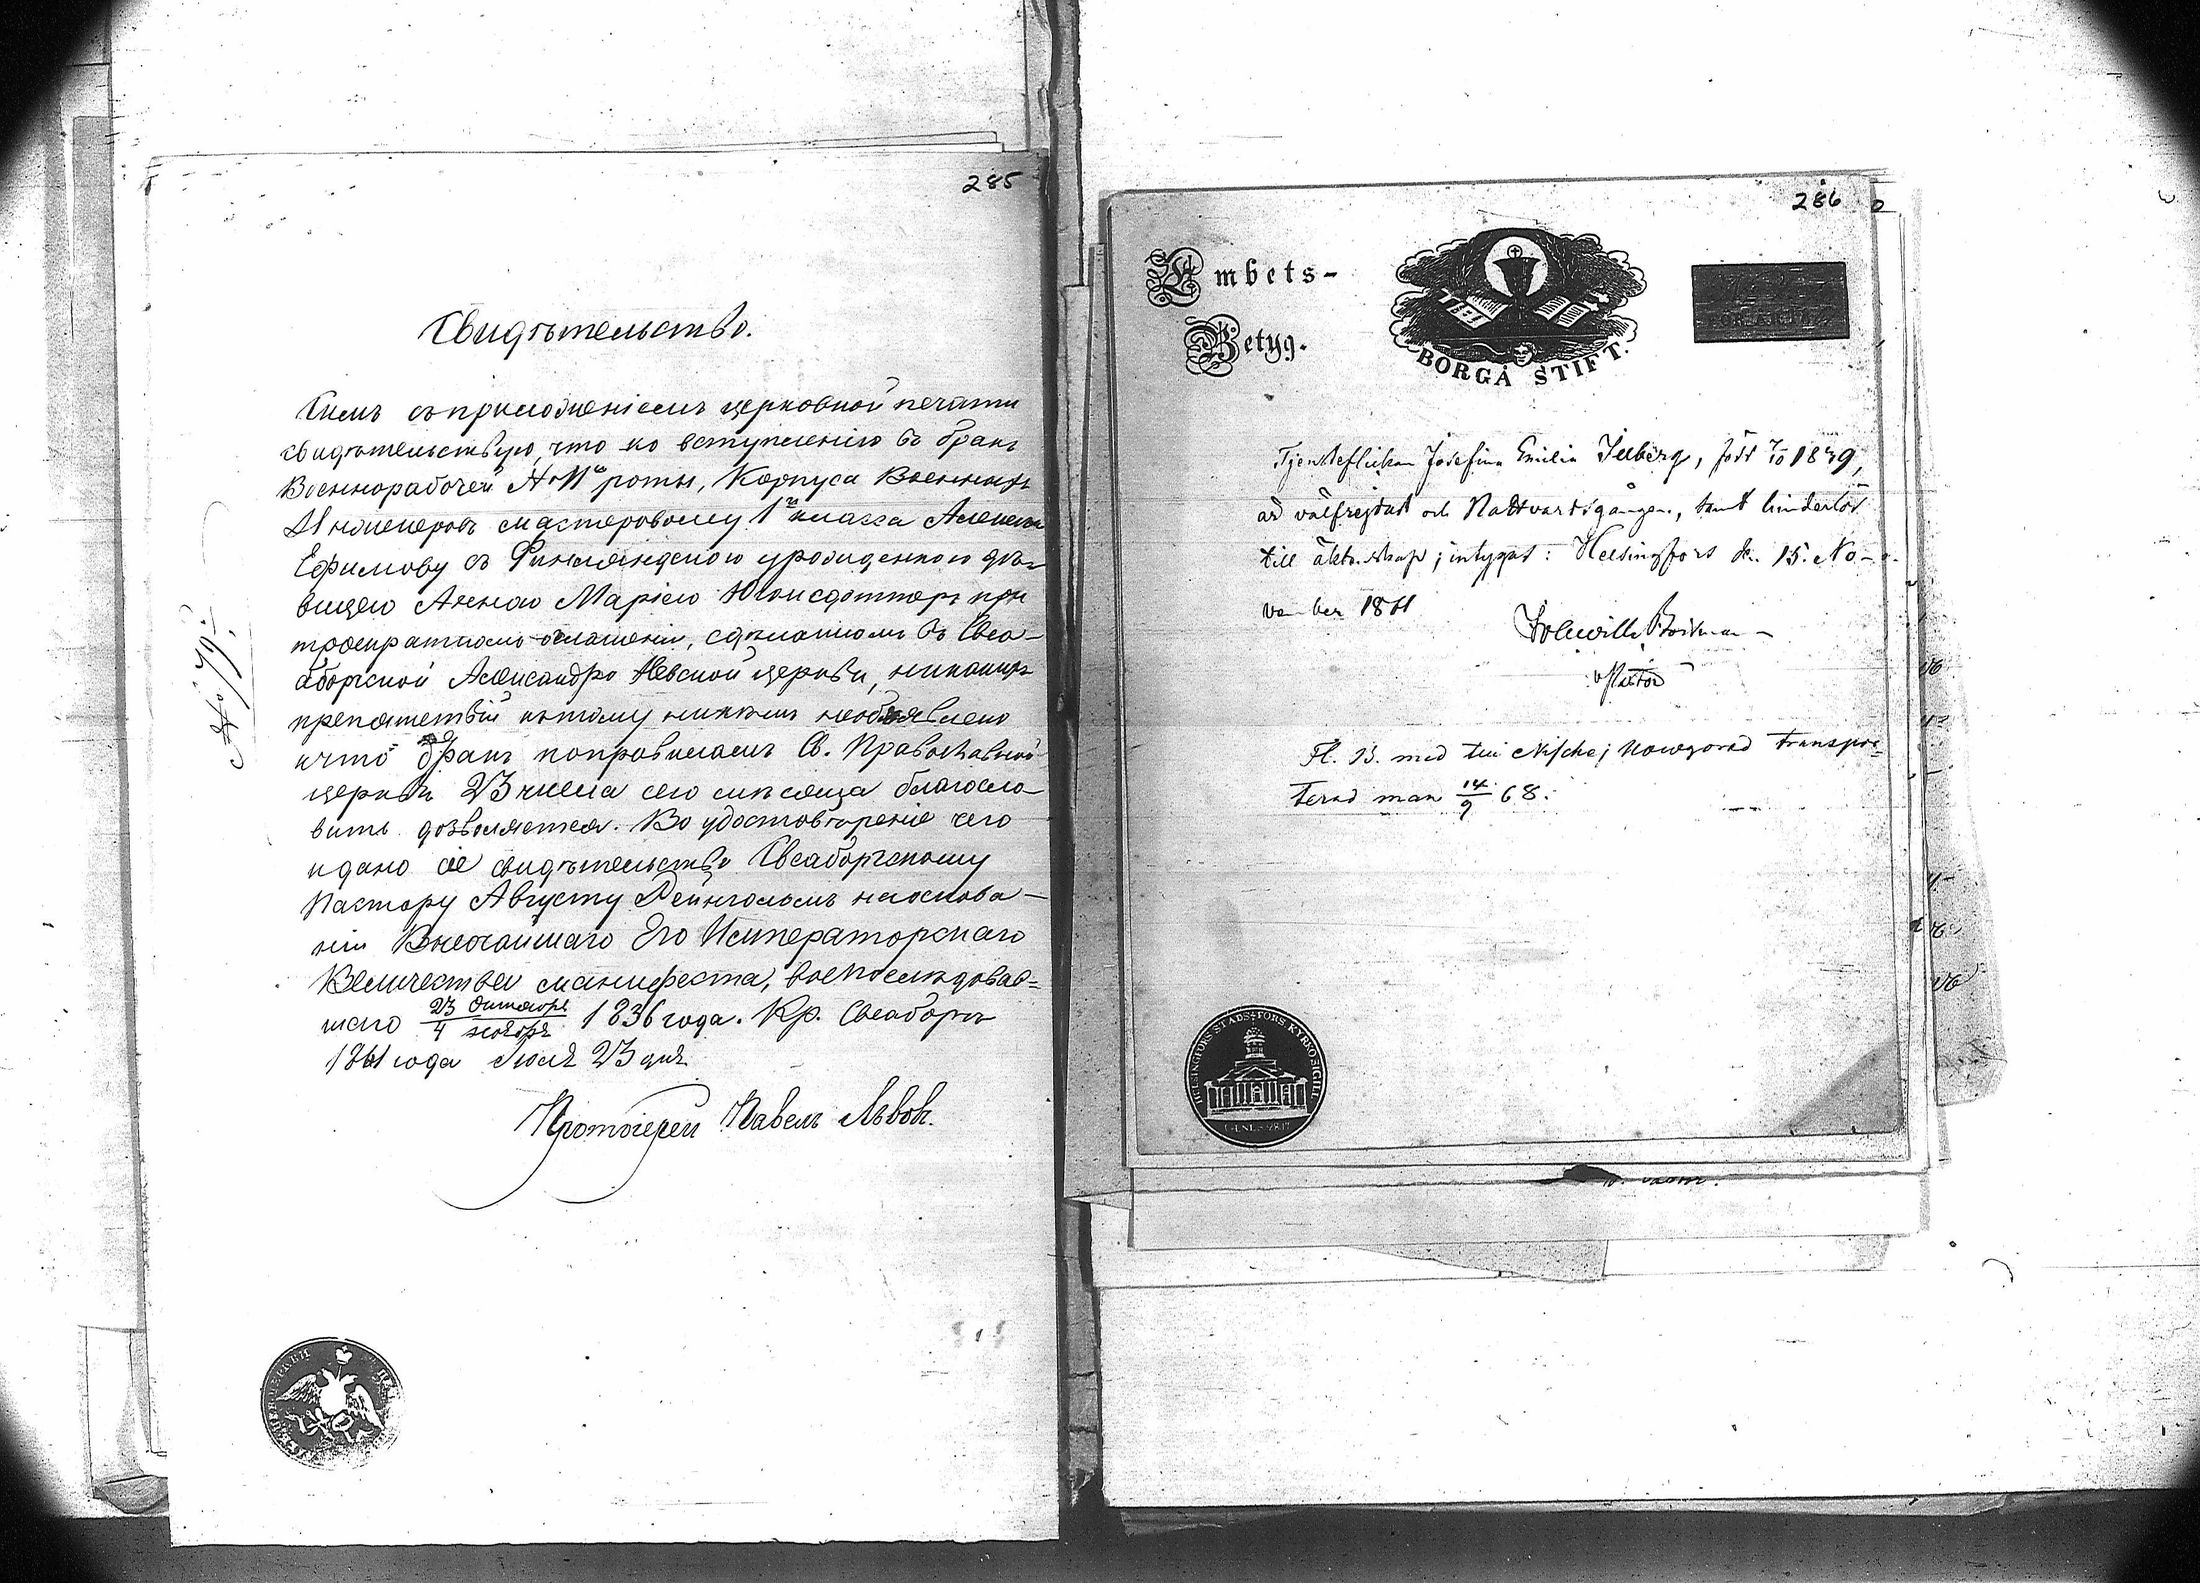 285
Свидѣтельство.
Симъ съ приложеніемъ церковной печати
свидѣтельствую, что ко вступленію въ бракъ
Военнорабочей № 11й роты, Корпуса Военныхъ
Инженеровъ мастеровому 1го класса Алексѣю
Ефимову съ Финляндскою уроженкою дѣ-
вицею Анною Маріею Югансдоттеръ при
троекратномъ оглашеніи, сдѣланномъ въ Свеа-
боргской Александро Невской церкви, никакихъ
препятствій къ тому никѣмъ необъявлено
и что бракъ по правиламъ Св. Православной
церкви 23 числа сего мѣсяца благосло-
вить дозволяется. Во удостовѣреніе чего
и дано сіе свидѣтельство Свеаборгскому
Пастору Августу на основа-
ніи Высочайшаго Его Императорскаго
Величества манифеста, воспослѣдовав=
шаго 23 октября / 4 ноября 1836 года. Кр. Свеаборгъ
1861 года Іюля 23 дня.
Протоіерей Павелъ Львовъ.
№ 79.
286
Embets-
Betyg.
BORGÅ STIFT.
Tjensteflickan Josefina Emilia , född 7/10 1839,
är välfrejdad och Nattvardsgången, samt hinderlös
till äktenskap; intygas: Helsingfors den 15. No-
vember 1861
Pastor
Fl. B. med till Nischej Nowgorod transpor-
terad man 14/9 68.
HELSINGFORS STADSFÖRS. KYRKOSIGILL